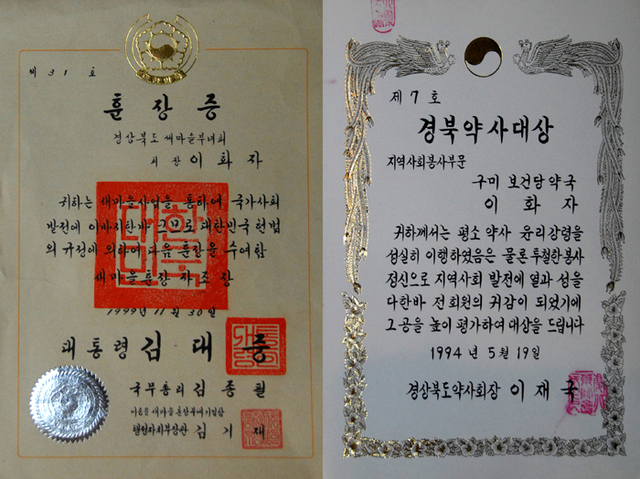 제 31 호
훈장증
경상북도 새마을부녀회
회장 이화자
귀하는 새마을사업을 통하여 국가사회
발전에 이바지한바 크므로 대한민국 헌법
의 규정에 의하여 다음 훈장을 수여함
새마을훈장 자조장
1999년 11월 30일
대통령 김대중
국무총리 김종필
이 증을 새마을훈장부에 기입함
행정자치부장관 김기재
제 7 호
경북약사대상
지역사회봉사부문
구미 보건당약국
이 화 자
귀하께서는 평소 약사 윤리강령을
성실히 이행하였음은 물론 투철한 봉사
정신으로 지역사회 발전에 열과 성을
다한바 전회원의 귀감이 되었기에
그 공을 높이 평가하여 대상을 드립니다
1994 년 5 월 19 일
경상북도약사회장 이 재 국